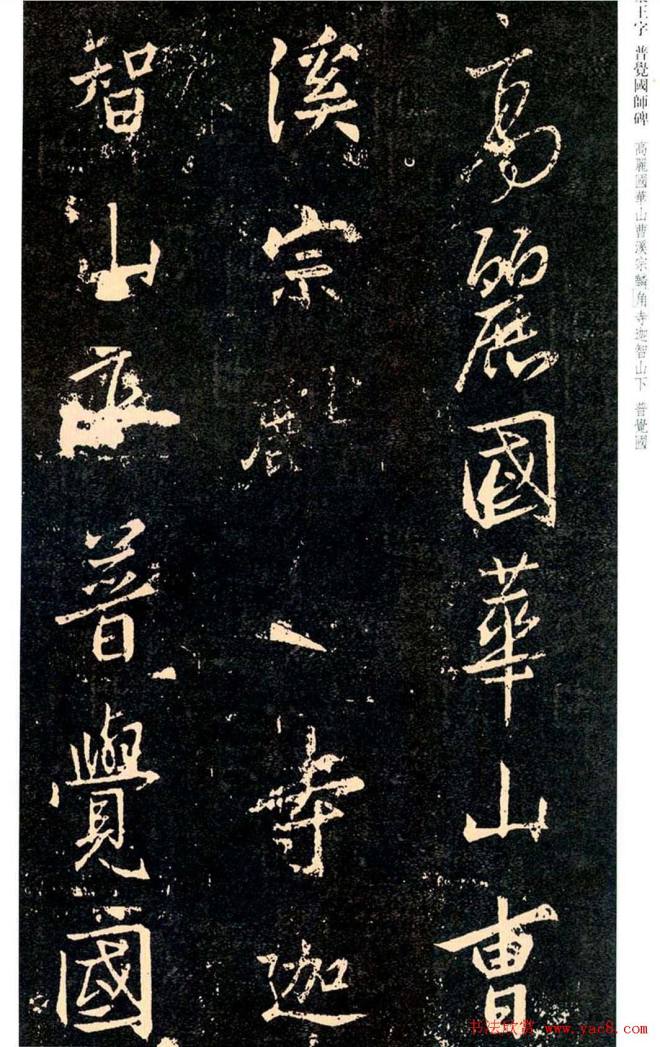 王字 普覺國師碑 高麗國華山曹溪宗麟角寺迦智山下 普覺國
高麗國華山曹
溪宗寺迦
智山下普覺國
书法欣赏 www.yac8.com